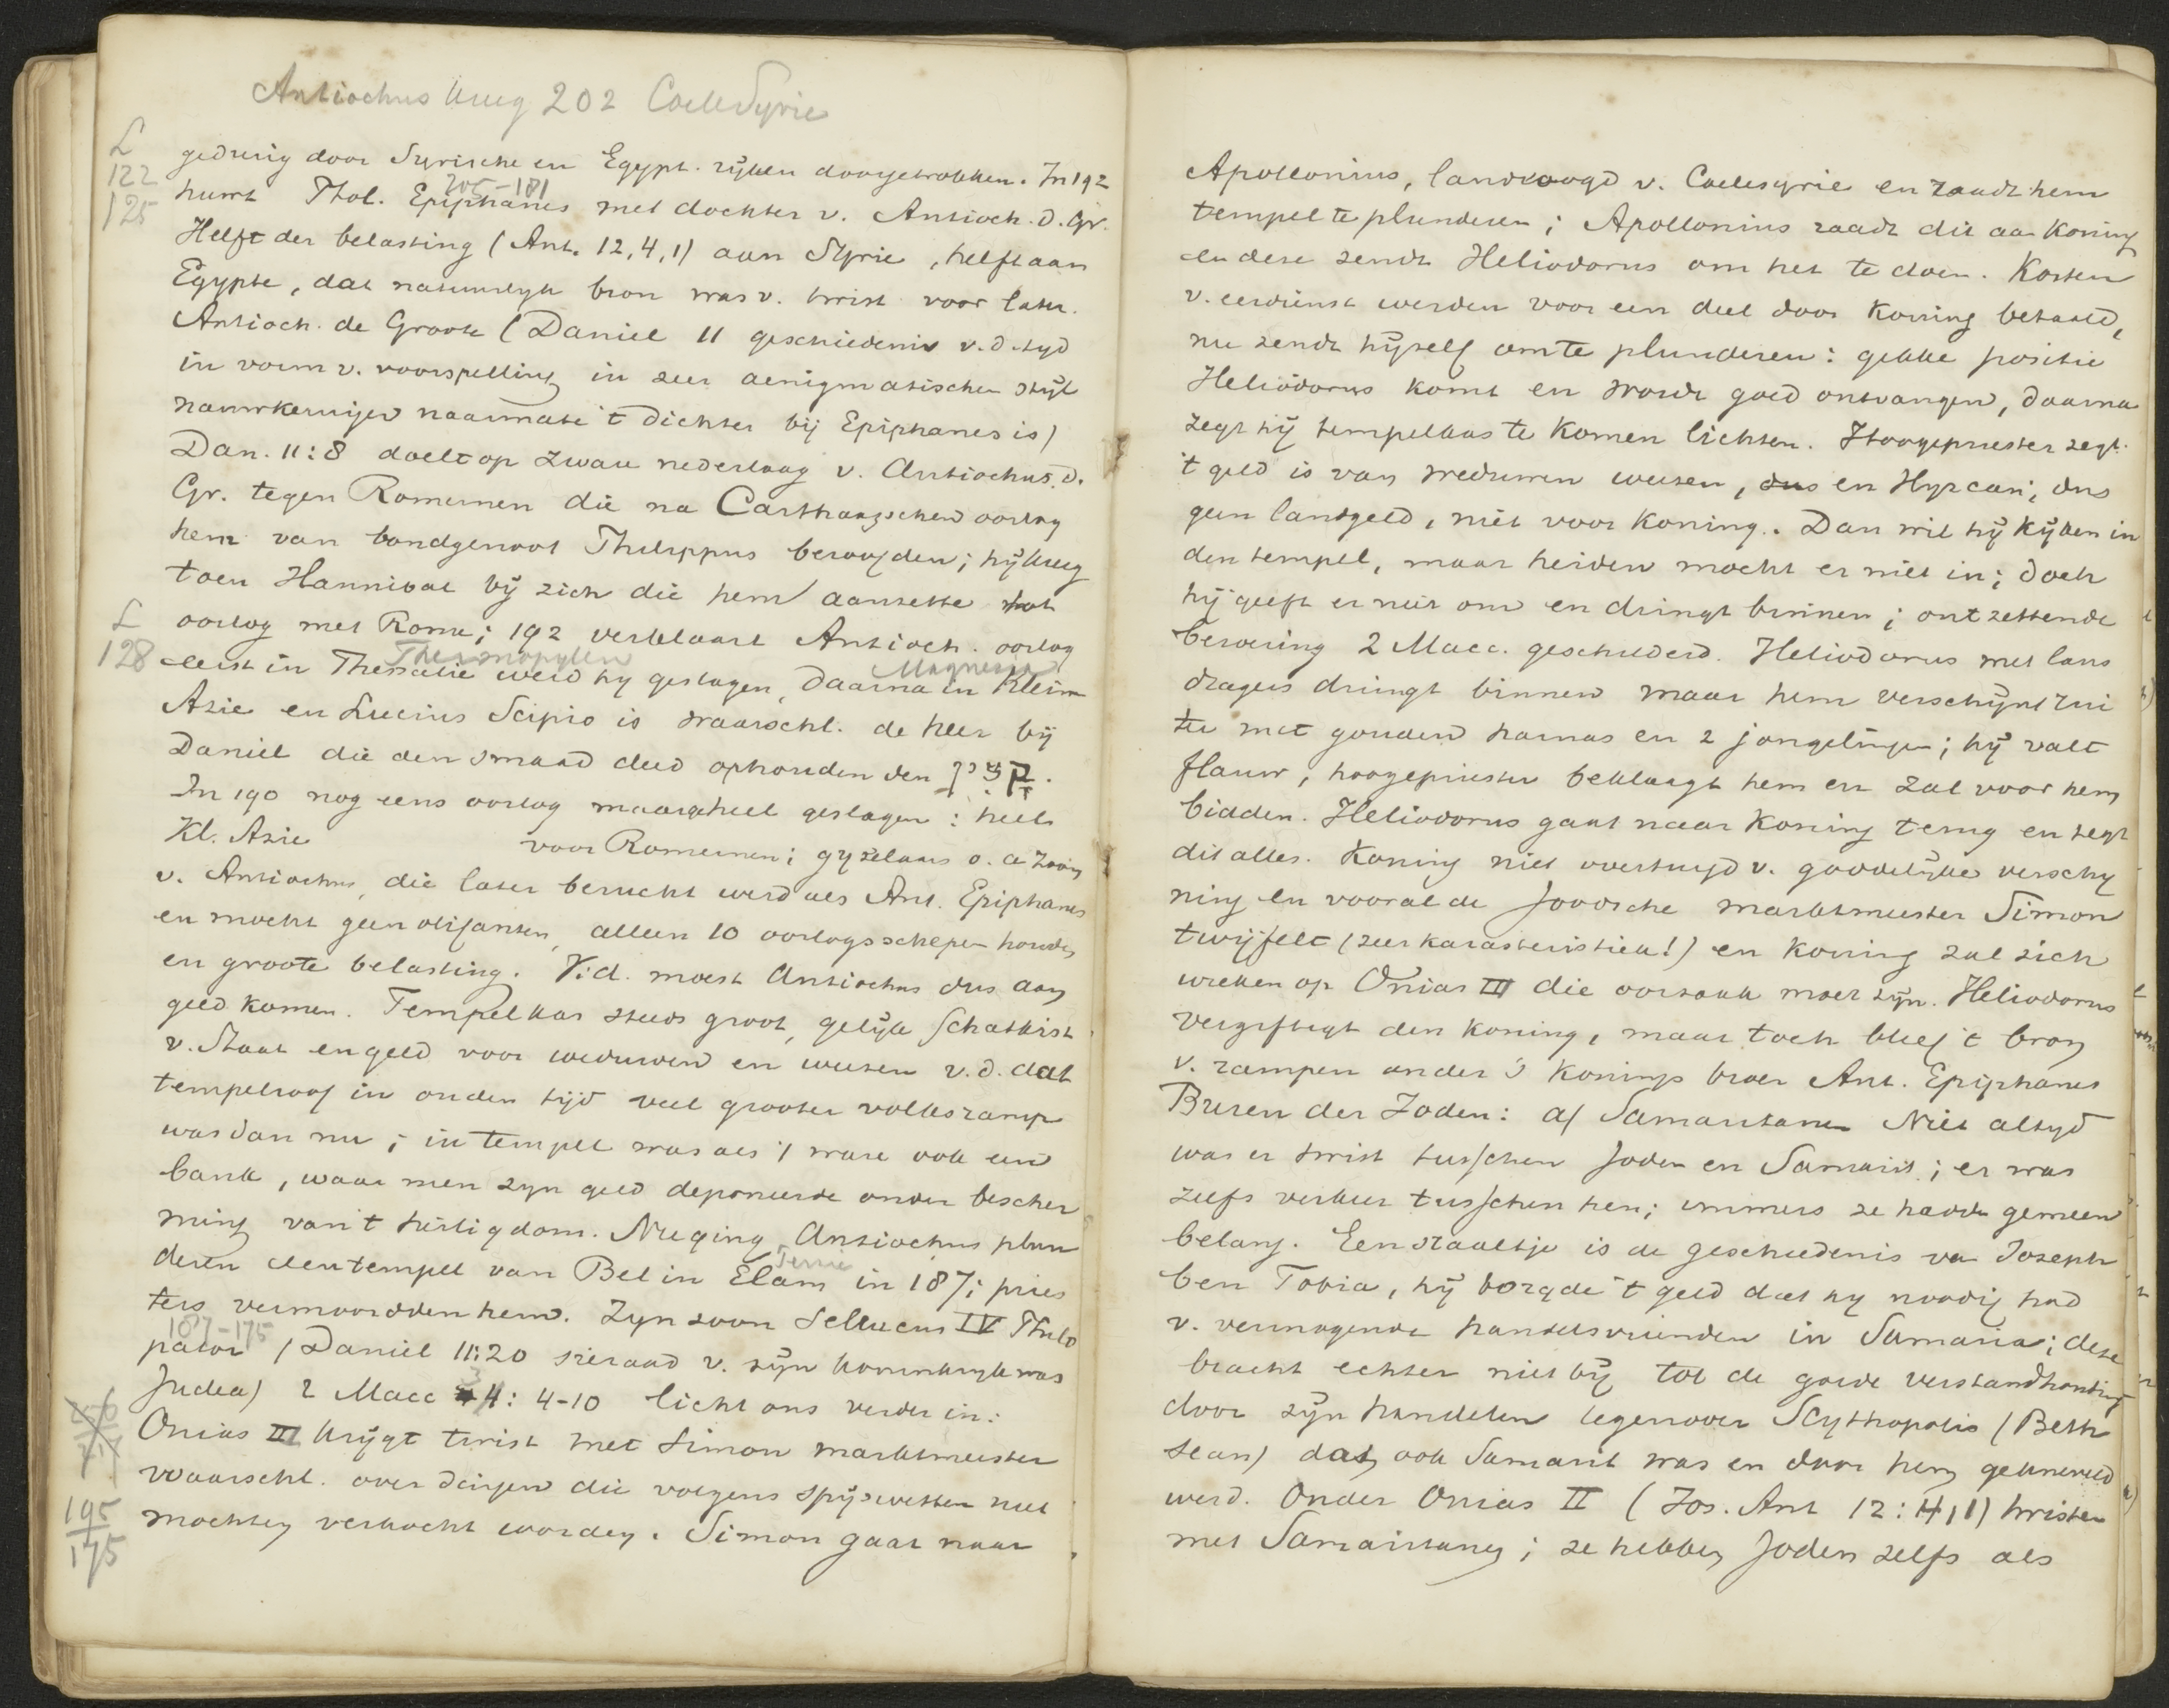 Antiochus kreeg 202 CoeleSyrie
L
122
125
gedurig door Syrische en Egypt. rijken doorgetrokken. In 192
205-181
huwt Phol. Epiphanes met dochter v. Antioch. d. Gr.
Helft der belasting (Ant. 12,4,1) aan Syrie, helft aan
Egypte, dat natuurlyk bron was v. twist voor later.
Antioch. de Groote (Daniel 11 geschiedenis v. d. tyd
in vorm v. voorspelling in zeer aenigmatischen stijl
nauwkeuriger naarmate 't dichter bij Epiphanes is)
Dan. 11:8 doelt op zware nederlaag v. Antiochus d.
Gr. tegen Romeinen die na Carthaagschen oorlog
hem van bondgenoot Philippus beroofden; hij kreeg
toen Hannibal bij zich die hem aanzette tot
L
128
oorlog met Rome; 192 verklaart Antioch. oorlog
Thermopylen Magnesia
eerst in Thessalie werd hy geslagen, daarna in Klein
Azie en Lucius Scipio is waarschl. de heer bij
Daniel die den smaad deed ophouden den קצין.
In 190 nog eens oorlog maar geheel geslagen: heel
Kl. Azie voor Romeinen; gyzelaars o. a zoon
v. Antiochus, die later berucht werd als Ant. Epiphanes
en mocht geen olifanten, alleen 10 oorlogsschepen houden
en groote belasting. V.d. moest Antiochus dus aan
geld komen. Tempelkas steeds groot, gelijk schatkist
v. Staat en geld voor weduwen en weezen v.d. dat
tempelroof in ouden tijd veel grooter volksramp
was dan nu; in tempel was als 't ware ook een
bank, waar men zyn geld deponeerde onder bescher
ming van 't heiligdom. Nu ging Antiochus plun
deren den tempel van Bel in Elam in 187; pries
ters vermoordden hem. Zyn zoon Seleucus IV Philo
187-175
pator (Daniel 11:20 sieraad v. zijn koninkryk was
Judea) 2 Macc 3 4: 4-10 licht ons verder in:
Onias III krijgt twist met Simon marktmeester
waarschl. over dingen die volgens spijswetten niet
195
175
mochten verkocht worden. Simon gaat naar
Apollonius, landvoogd v. Coelesyrie en raadt hem
tempel te plunderen; Apollonius raadt dit aan Koning
en deze zendt Heliodorus om het te doen. Kosten
v. eerdienst werden voor een deel door Koning betaald,
nu zendt hijzelf om te plunderen: gekke positie
Heliodorus komt en wordt goed ontvangen, daarna
zegt hij tempelkas te komen lichten. Hoogepriester zegt:
't geld is van weduwen weezen, dus en Hyrcan; dus
geen landgeld, niet voor Koning. Dan wil hij kijken in
den tempel, maar heiden mocht er niet in; doch
hij geeft er niet om en dringt binnen; ontzettende
beroering 2 Macc. geschilderd. Heliodorus met lans
dragers dringt binnen maar hem verschijnt rui
ter met gouden harnas en 2 jongelingen; hij valt
flauw, hoogepriester beklaagt hem en zal voor hem
bidden. Heliodorus gaat naar Koning terug en zegt
dit alles. Koning niet overtuigd v. goddelijke verschy
ning en vooral de Joodsche marktmeester Simon
twijfelt (zeer karakteristiek!) en Koning zal zich
wreken op Onias III die oorzaak moet zijn. Heliodorus
vergiftigt den Koning, maar toch bleef 't bron
v. rampen onder 's Konings broer Ant. Epiphanes
Buren der Joden: a) Samaritanen Niet altyd
was er twist tusschen Joden en Samarit.; er was
zelfs verkeer tusschen hen; immers ze hadden gemeen
belang. Een staaltje is de geschiedenis van Joseph
ben Tobia, hij borgde 't geld dat hij noodig had
v. vermogende handelsvrienden in Samaria; deze
bracht echter niet bij tot de goede verstandhouding
door zijn handelen tegenover Scythopolis (Beth
Sean) dat ook Samarit was en door hem gekneveld
werd. Onder Onias II (Jos. Ant 12: 4,1) twisten
met Samaritanen; ze hebben Joden zelfs als